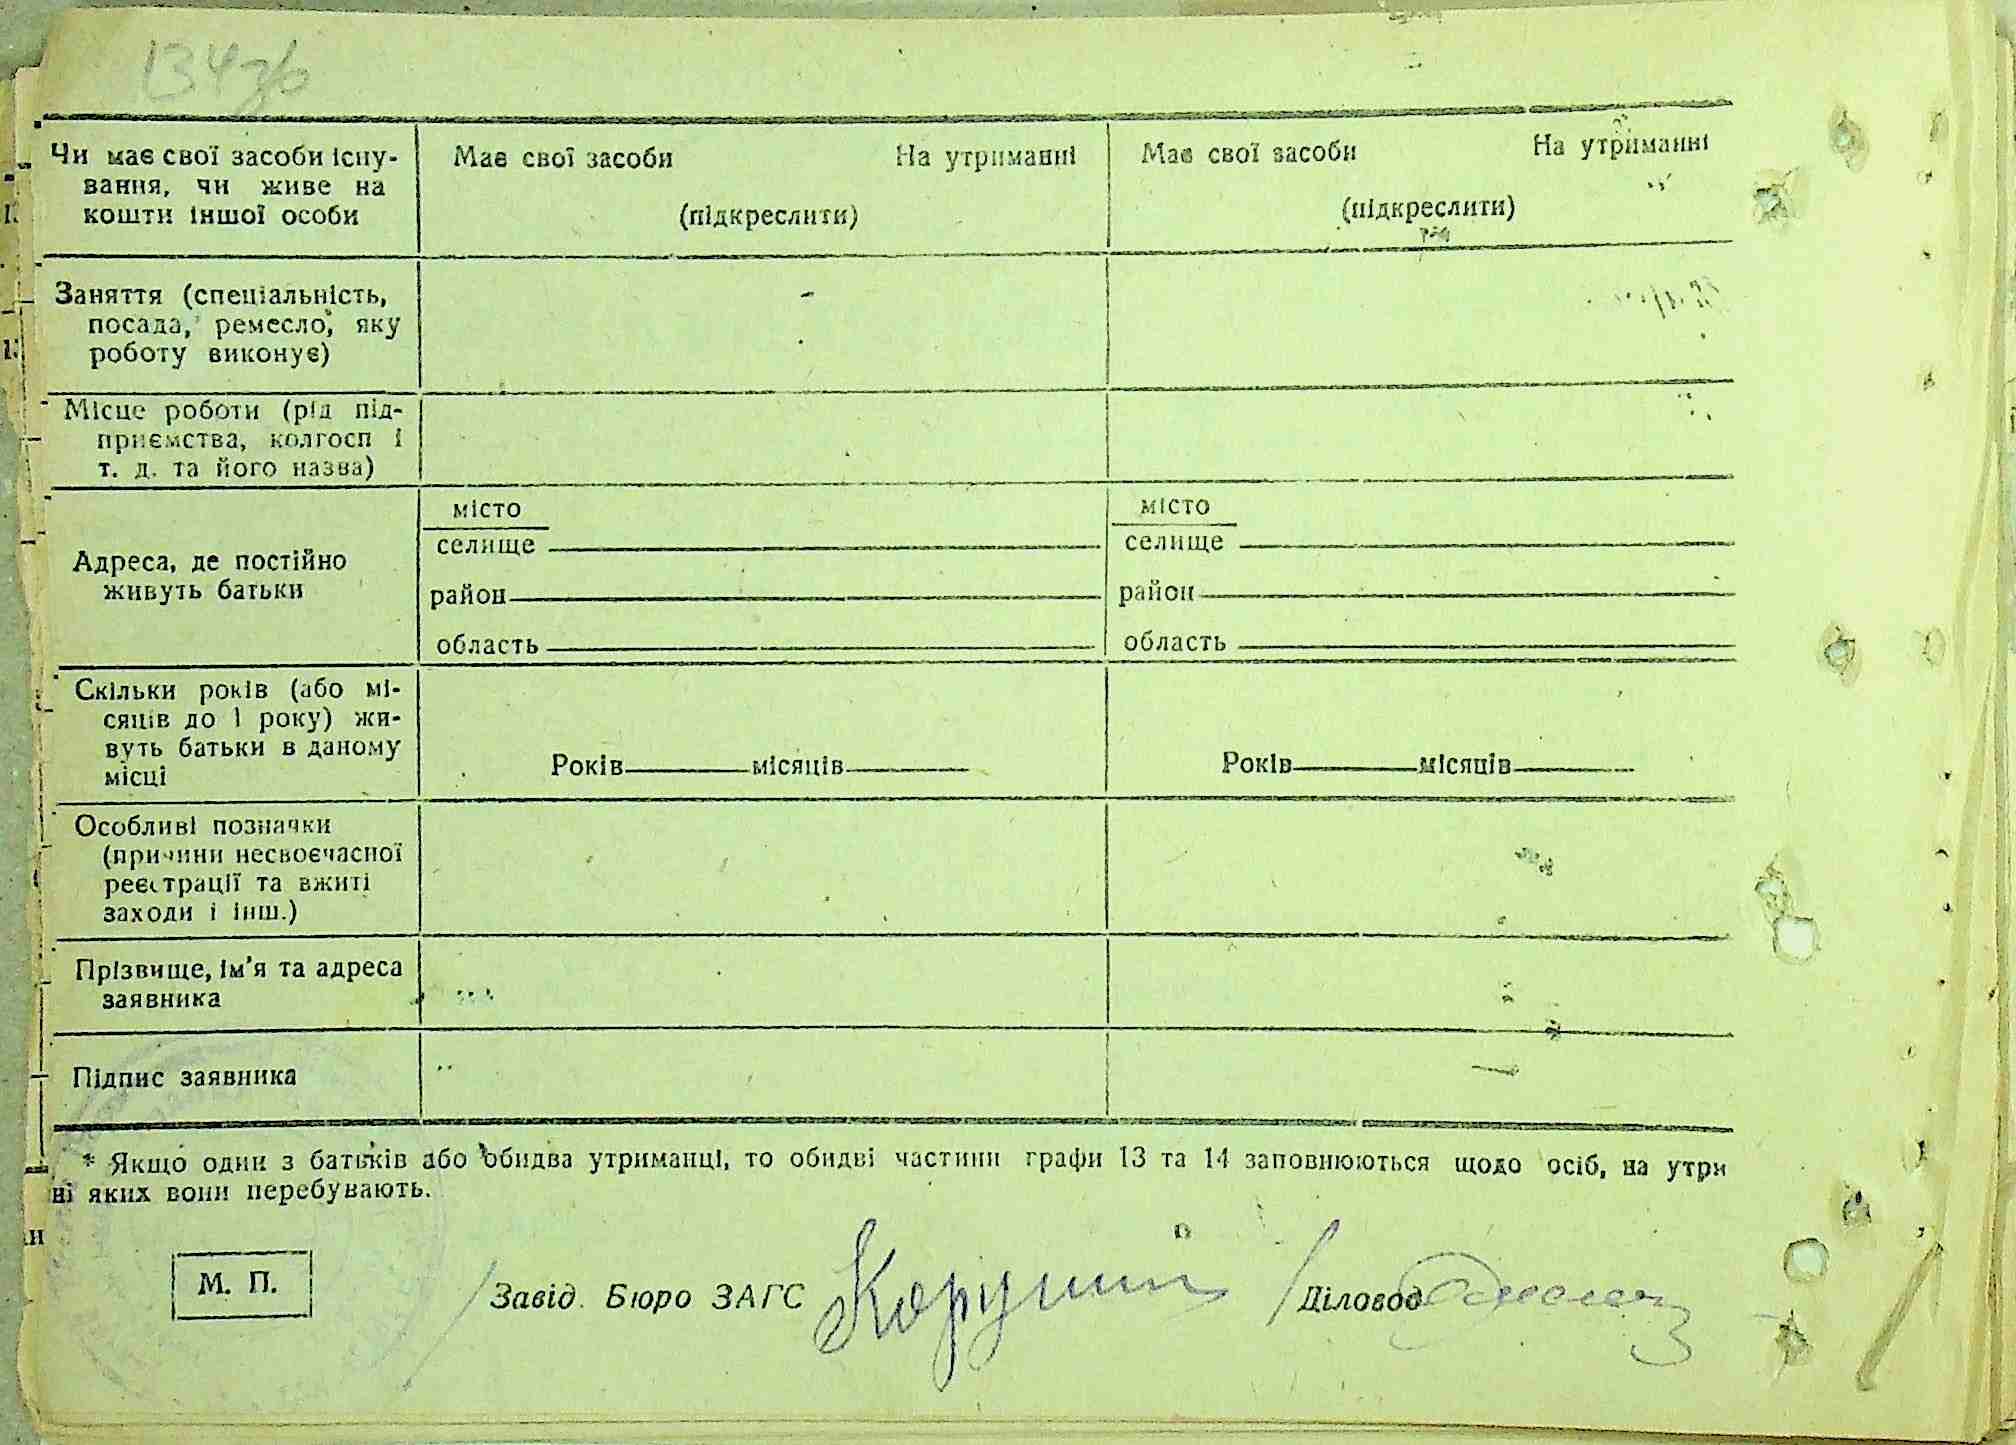 134 зв
Чи має свої засоби існу-
вання, чи живе на
кошти іншої особи
Має свої засоби На утриманні
(підкреслити)
Має свої засоби На утриманні
(підкреслити)
Заняття (спеціальність,
посада, ремесло, яку
роботу виконує)
Місце роботи (рід під-
приємства, колгосп і
т. д. та його назва)
Адреса, де постійно
живуть батьки
місто
селище
район
область
місто
селище
район
область
Скільки років (або мі-
сяців до 1 року) жи-
вуть батьки в даному
місці
Років місяців
Років місяців
Особливі позначки
(причини несвоєчасної
реєстрації та вжиті
заходи і інш.)
Прізвище, ім'я та адреса
заявника
Підпис заявника
* Якщо один з батьків або обидва утриманці, то обидві частини графи 13 та 14 заповнюються щодо осіб, на утри
ні яких вони перебувають.
М. П.
Завід. Бюро ЗАГС
Діловод